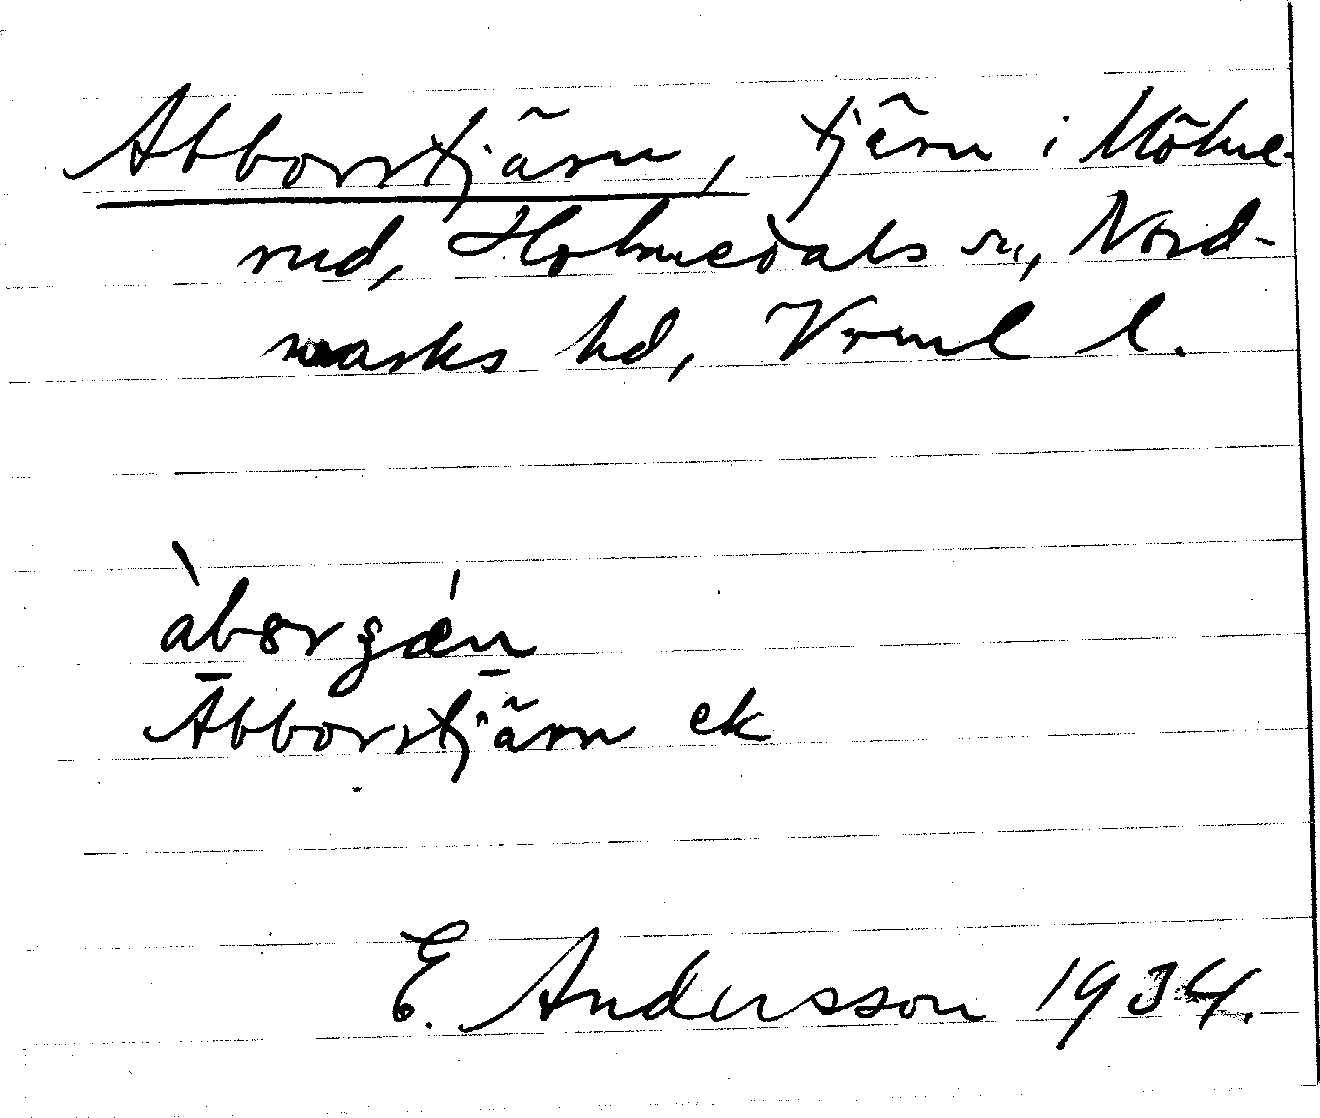 Abborrtjärn, tjärn i Mölne-
rud, Holmedals sn, Nord-
marks hd, Vrml l.
àbørgǽn
Abborrtjärn ek
E. Andersson 1934.